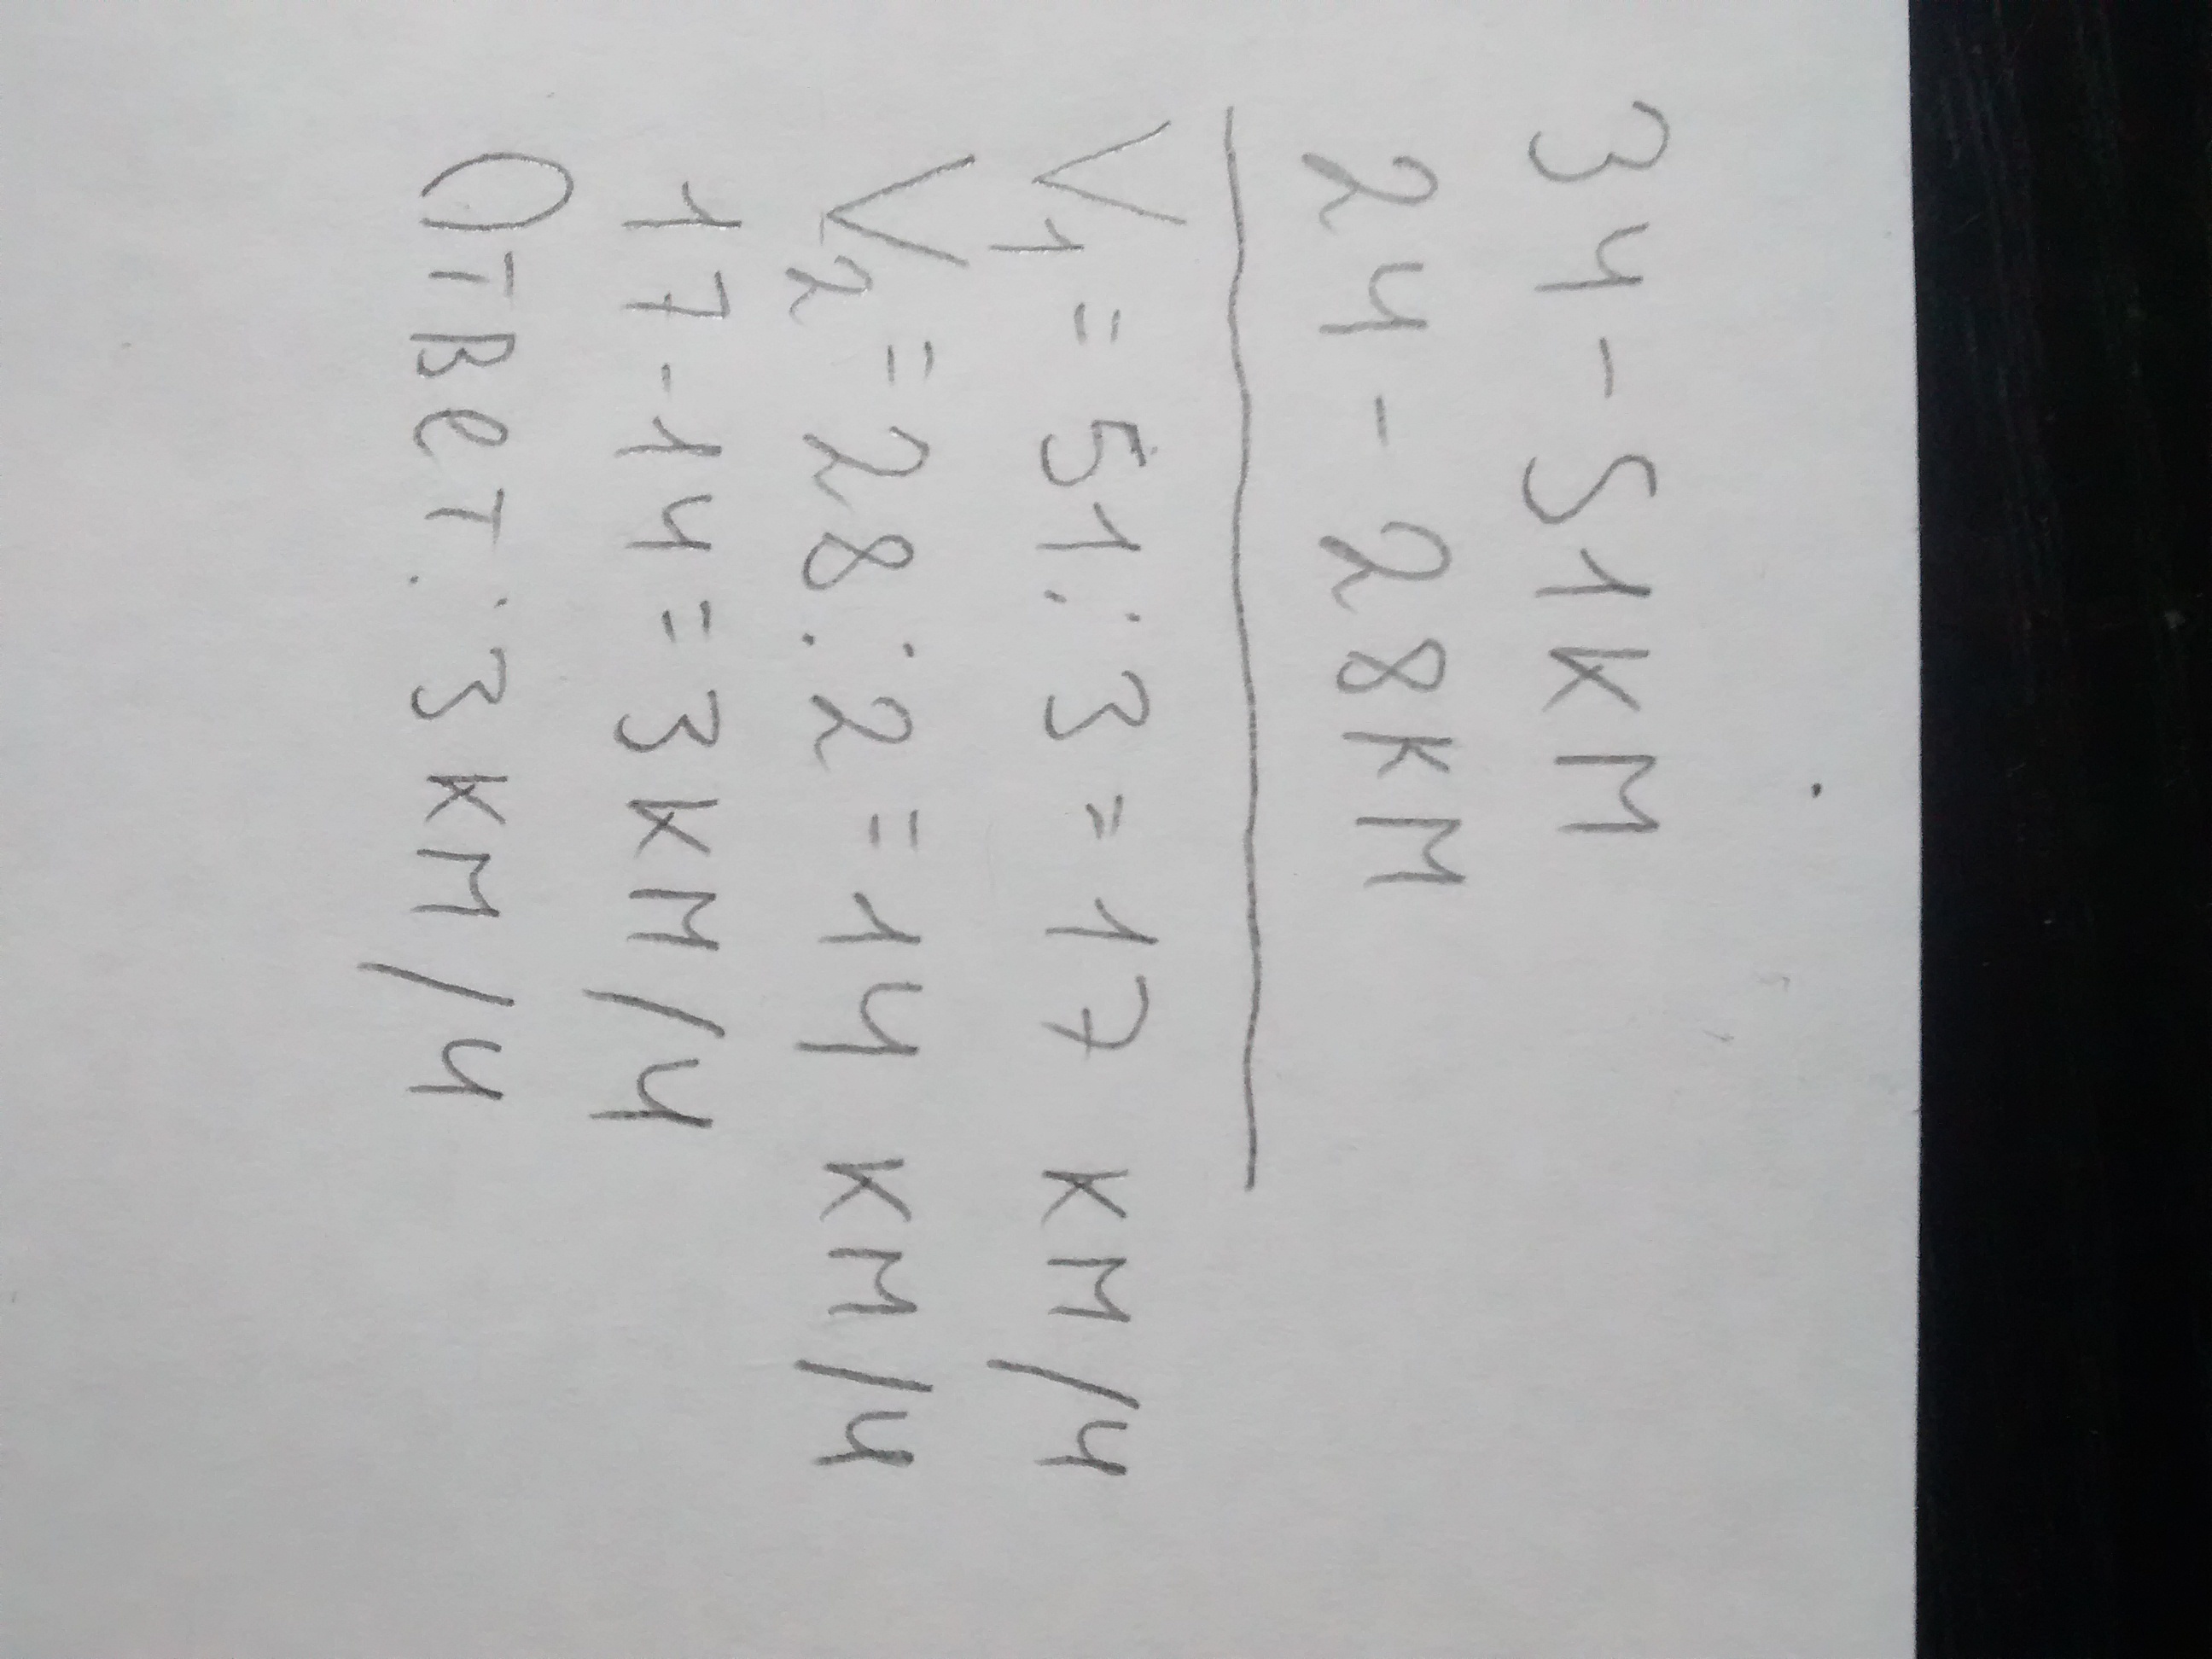 3ч - 51км
2ч - 28км
V1 = 51 : 3 = 17 км/ч
V2 = 28 : 2 = 14 км/ч
17 - 14 = 3км/ч
Ответ: 3 км/ч